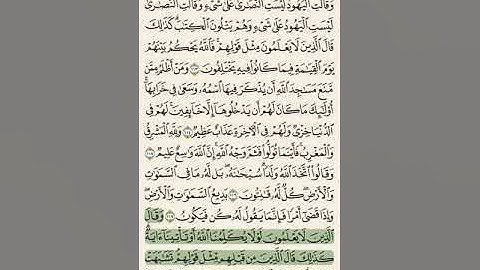 وَقَالَتِ ٱلْيَهُودُ لَيْسَتِ ٱلنَّصَٰرَىٰ عَلَىٰ شَىْءٍ وَقَالَتِ ٱلنَّصَٰرَىٰ
لَيْسَتِ ٱلْيَهُودُ عَلَىٰ شَىْءٍ وَهُمْ يَتْلُونَ ٱلْكِتَٰبَ ۗ كَذَٰلِكَ
قَالَ ٱلَّذِينَ لَا يَعْلَمُونَ مِثْلَ قَوْلِهِمْ ۚ فَٱللَّهُ يَحْكُمُ بَيْنَهُمْ
يَوْمَ ٱلْقِيَٰمَةِ فِيمَا كَانُوا۟ فِيهِ يَخْتَلِفُونَ ١١٣ وَمَنْ أَظْلَمُ مِمَّن
مَّنَعَ مَسَٰجِدَ ٱللَّهِ أَن يُذْكَرَ فِيهَا ٱسْمُهُۥ وَسَعَىٰ فِى خَرَابِهَآ ۚ
أُو۟لَٰٓئِكَ مَا كَانَ لَهُمْ أَن يَدْخُلُوهَآ إِلَّا خَآئِفِينَ ۚ لَهُمْ فِى
ٱلدُّنْيَا خِزْىٌ وَلَهُمْ فِى ٱلْـَٔاخِرَةِ عَذَابٌ عَظِيمٌ ١١٤ وَلِلَّهِ ٱلْمَشْرِقُ
وَٱلْمَغْرِبُ ۚ فَأَيْنَمَا تُوَلُّوا۟ فَثَمَّ وَجْهُ ٱللَّهِ ۚ إِنَّ ٱللَّهَ وَٰسِعٌ عَلِيمٌ ١١٥
وَقَالُوا۟ ٱتَّخَذَ ٱللَّهُ وَلَدًا ۗ سُبْحَٰنَهُۥ ۖ بَل لَّهُۥ مَا فِى ٱلسَّمَٰوَٰتِ
وَٱلْأَرْضِ ۖ كُلٌّ لَّهُۥ قَٰنِتُونَ ١١٦ بَدِيعُ ٱلسَّمَٰوَٰتِ وَٱلْأَرْضِ ۖ
وَإِذَا قَضَىٰٓ أَمْرًا فَإِنَّمَا يَقُولُ لَهُۥ كُن فَيَكُونُ ١١٧ وَقَالَ
ٱلَّذِينَ لَا يَعْلَمُونَ لَوْلَا يُكَلِّمُنَا ٱللَّهُ أَوْ تَأْتِينَآ ءَايَةٌ ۗ
كَذَٰلِكَ قَالَ ٱلَّذِينَ مِن قَبْلِهِم مِّثْلَ قَوْلِهِمْ ۘ تَشَٰبَهَتْ